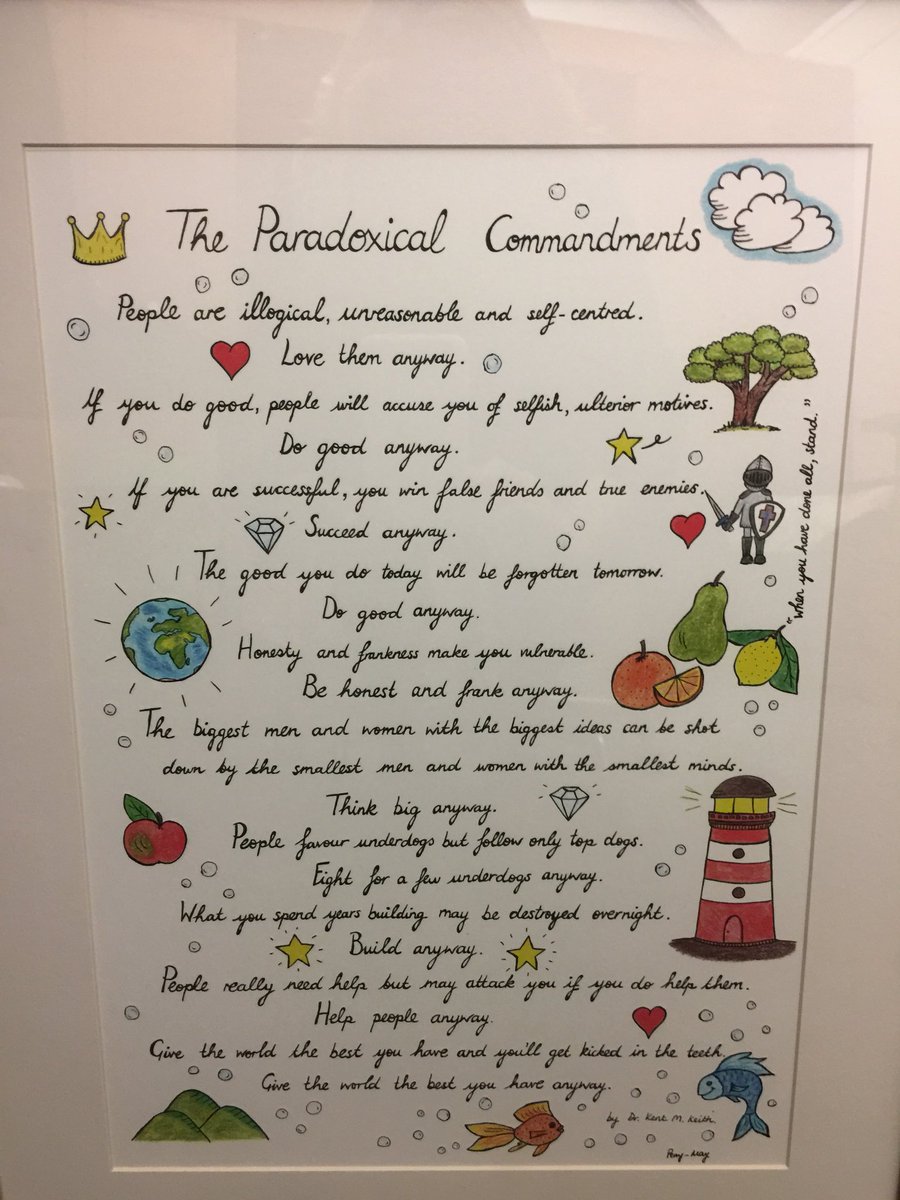 The Paradoxical Commandments
People are illogical, unreasonable and self-centred.
Love them anyway.
If you do good, people will accuse you of selfish, ulterior motives.
Do good anyway.
If you are successful, you win false friends and true enemies.
Succeed anyway.
The good you do today will be forgotten tomorrow.
Do good anyway.
Honesty and frankness make you vulnerable.
Be honest and frank anyway.
The biggest men and women with the biggest ideas can be shot
down by the smallest men and women with the smallest minds.
Think big anyway.
People favour underdogs but follow only top dogs.
Fight for a few underdogs anyway.
What you spend years building may be destroyed overnight.
Build anyway.
People really need help but may attack you if you do help them.
Help people anyway.
Give the world the best you have and you'll get kicked in the teeth.
Give the world the best you have anyway.
by Dr. Kent M. Keith.
"When you have done all, stand."